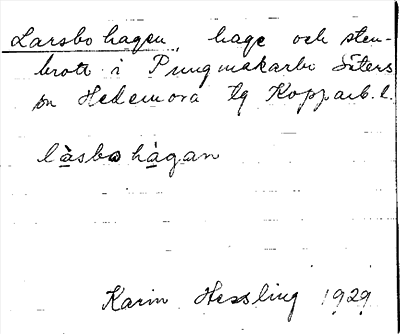 Larsbo hagen, hage och sten-
brott i Pungmakarbo Säters
sn Hedemora tg Kopparb. l.
làsbo hàgan
Karin Hessling 1929